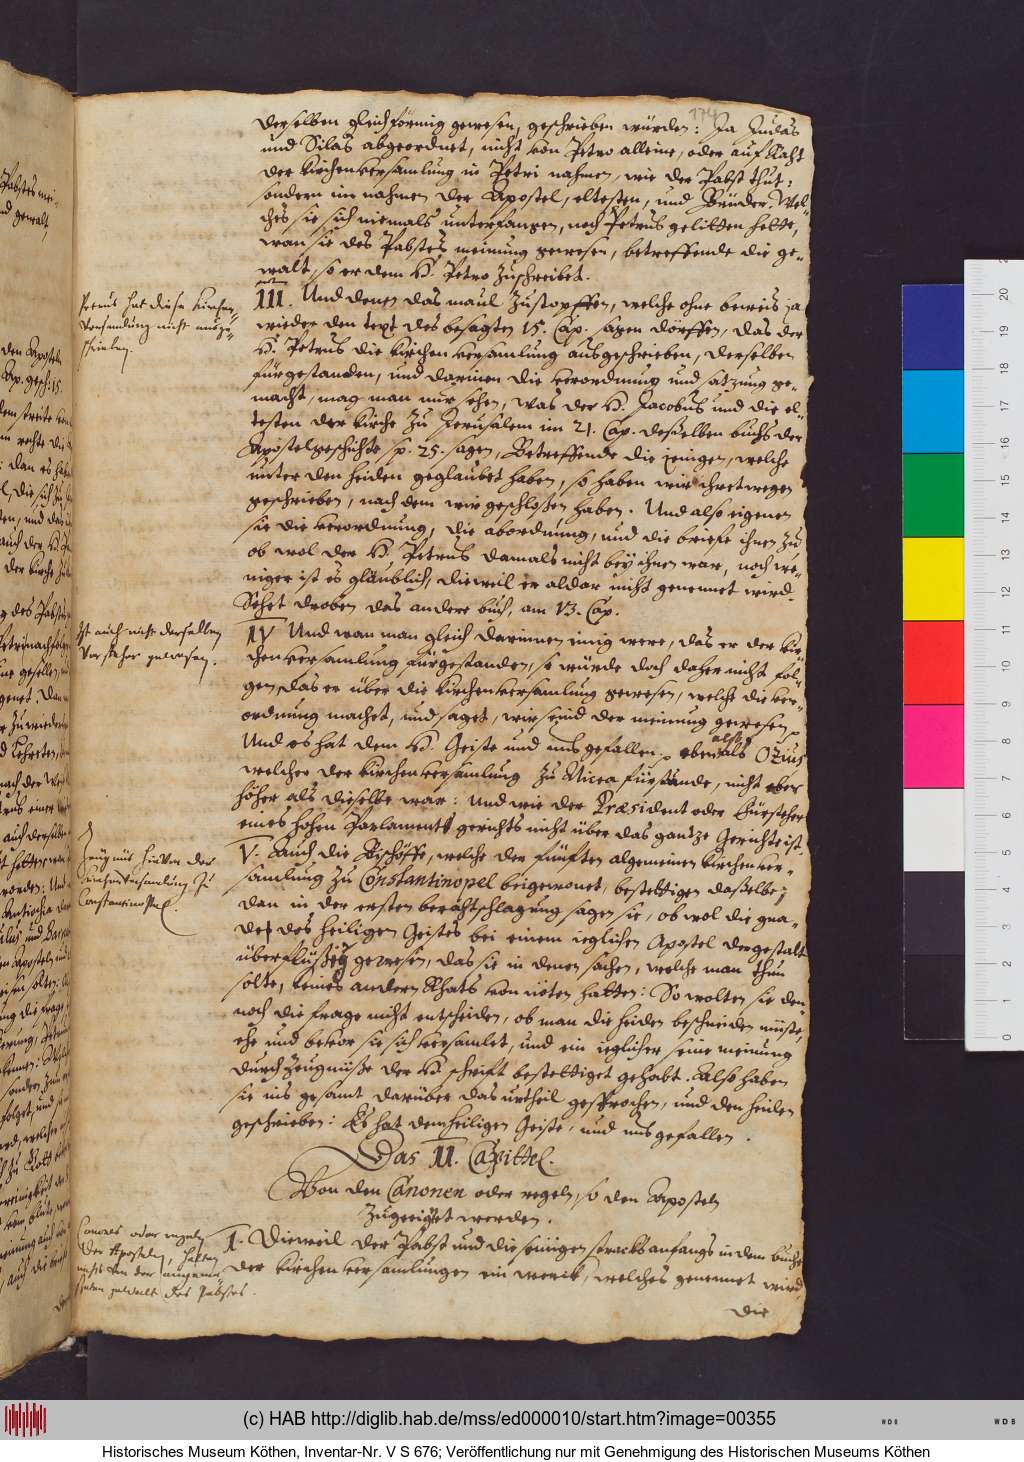 174
derselben gleichförmig gewesen, geschrieben würden: Ja Judas
und Silas abgeordnet, nicht von Petro alleine, oder auf Raht
der kirchenversamlung in Petri nahmen, wie der Pabst thut:
sondern im nahmen der Apostel, eltesten, und Brüder. Wel-
ches sie sich niemals unterfangen, noch Petrus gelitten hette,
wan sie des Pabstes meinung gewesen, betreffende die ge-
walt, so er dem H. Petro zuschreibet.
Petrus hat diese Kirchen-
versamlung nicht ausge-
schrieben.
III. Und denen das maul zustopffen, welche ohne beweis ja
wieder den text des besagten 15. Cap. sagen dörffen, das der
H. Petrus die kirchen versamlung ausgeschrieben, derselben
fürgestanden, und darinen die verordnung und satzung ge-
macht, mag man nur sehen, was der H. Jacobus und die el-
testen der kirche zu Jerusalem im 21. Cap. desselben buchs der
Apostelgeschichte sp. 25. sagen, Betreffende die jenigen, welche
unter den heiden geglaubet haben, so haben wir ihretwegen
geschrieben, nach dem wir geschloßen haben. Und also eigenen
sie die verordnung, die abordnung, und die briefe ihnen zu
ob wol der H. Petrus damals nicht bey ihnen war, noch we-
niger ist es gläublich, dieweil er aldar nicht genennet wird.
Sehet droben das andere buch, am 13. Cap.
Ist auch nicht derselben
Vorsteher gewesen.
IV Und wan man gleich darinnen einig were, das er der kir-
chenversamlung fürgestanden, so würde doch daher nicht fol-
gen, das er über die kirchenversamlung gewesen, welche die ver-
ordnung machet, und saget, wir seind der meinung gewesen,
Und es hat dem H. Geiste und uns gefallen. eben als Ozius
welcher der kirchenversamlung zu Nicea fürstunde, nicht eben
höher als dieselbe war: Und wie der Præsident oder fürsteher
eines hohen Parlaments gerichts nicht über das gantze Gerichte ist.
Zeügnus hievon der
Kirchenversamlung zu
Constantinopel.
V. Auch die Bischöffe, welche der fünften algemeinen kirchenver-
samlung zu Constantinopel beigewonet, bestettigen daßelbe;
dan in der ersten berahtschlagung sagen sie, ob wol die gna-
de des heiligen Geistes bei einem ieglichen Apostel dergestalt
überflüßig gewesen, das sie in denen sachen, welche man thun
solte, keines andern Rhats von nöten hatten: So wolten sie den-
noch die frage nicht entscheiden, ob man die heiden beschneiden müste,
ehe und bevor sie sich versamlet, und ein ieglicher seine meinung
durch zeugnüße der H. schrift bestettiget gehabt. Also haben
sie ins gesamt darüber das urtheil gesprochen, und den heiden
geschrieben: Es hat dem heiligen Geiste, und uns gefallen.
Das II. Capittel.
Von den Canonen oder regeln, so den Aposteln
zugeeignet werden.
Canones oder regeln
der Aposteln halten
nichts von der
gewalt des Pabstes.
I. Dieweil der Pabst und die seinigen stracks anfangs in dem buche
der kirchen versamlungen ein werck, welches genennet wird
die
(c) HAB http://diglib.hab.de/mss/ed000010/start.htm?image=00355
WDB
WDB
Historisches Museum Köthen, Inventar-Nr. V S 676; Veröffentlichung nur mit Genehmigung des Historischen Museums Köthen